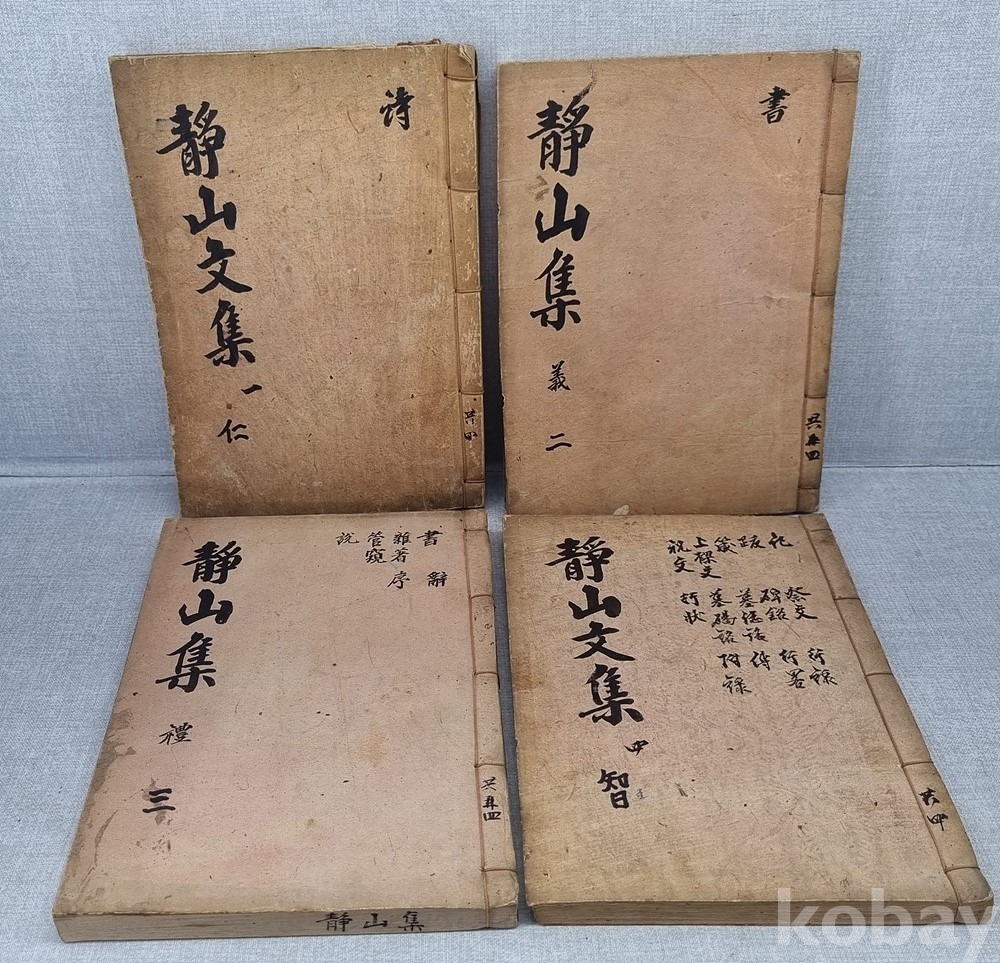 詩
靜山文集 一 仁
共四
書
靜山集 義 二
共冊四
書 辭
雜著 序
管窺
說
靜山集 禮 三
共冊四
靜山集
記
跋
箴
上樑文
祝文
祭文
碑銘
墓誌銘
墓碣銘
行狀
行錄
行畧
傳
附錄
靜山文集 四 智
共四
kobay